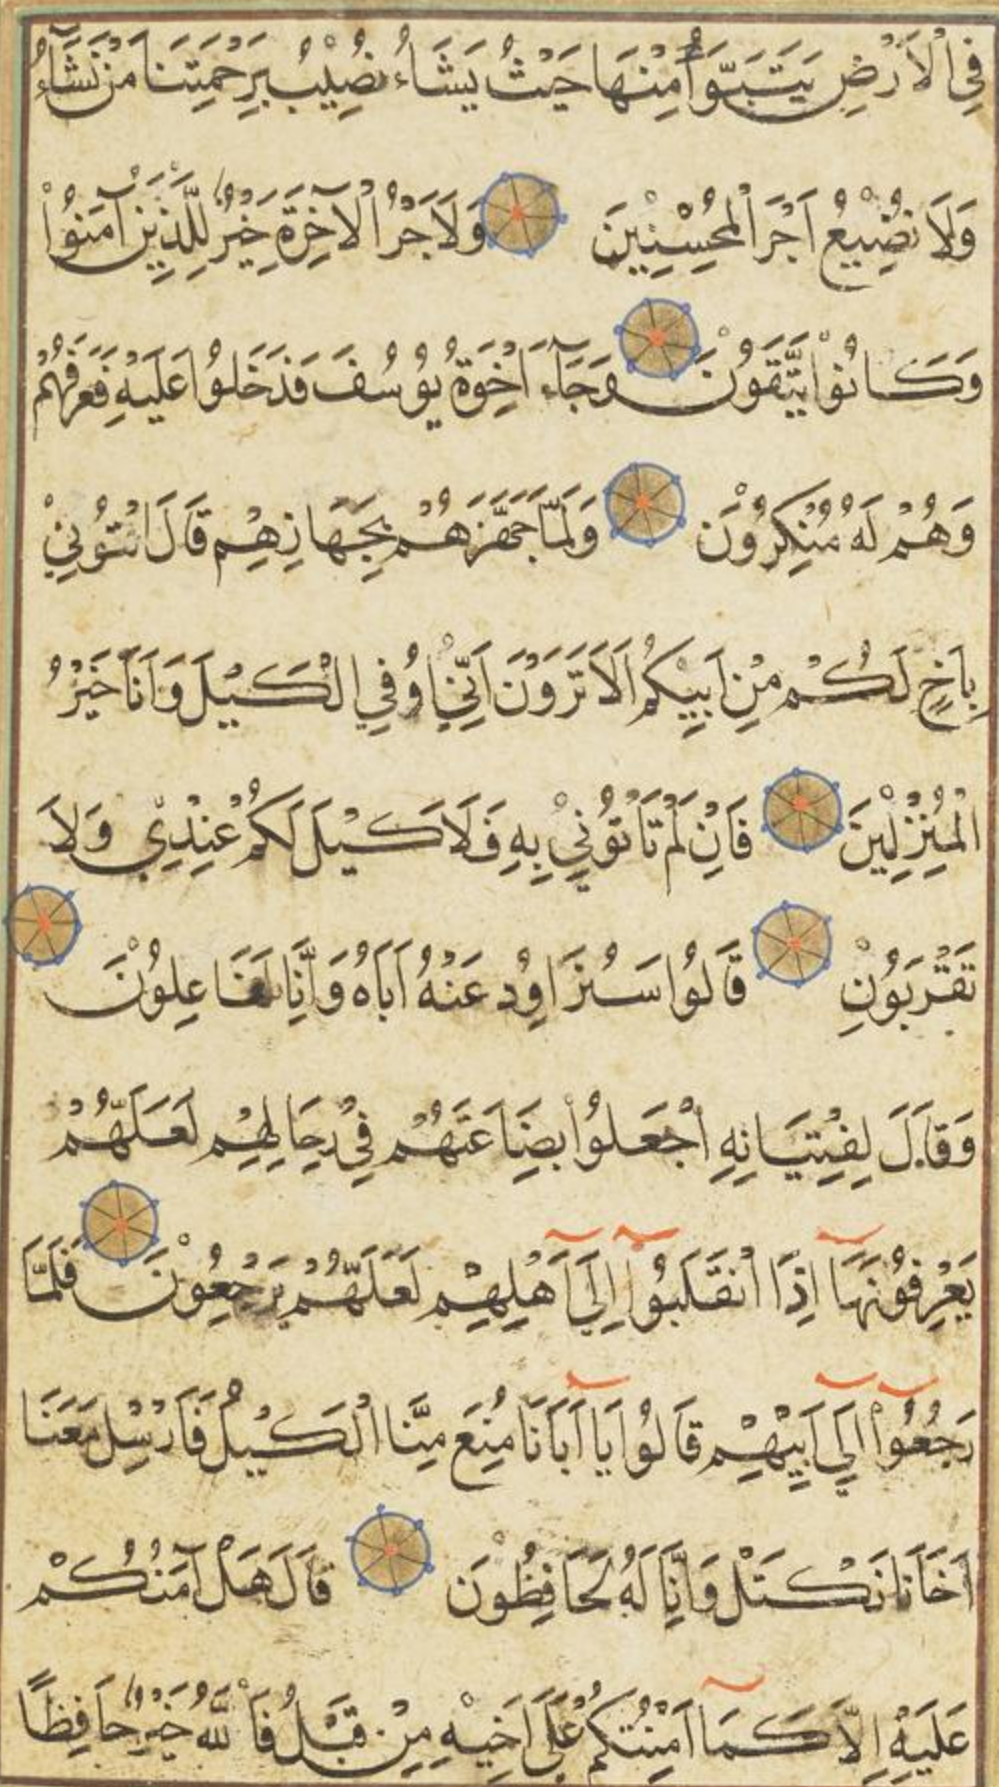 فِي الْاَرْضِ يَتَبَوَّاُ مِنْهَا حَيْثُ يَشَاءُ نُصِيْبُ بِرَحْمَتِنَا مَنْ نَشَآءُ
وَلَا نُضِيْعُ اَجْرَ الْمُحْسِنِيْنَ وَلَاَجْرُ الْآخِرَةِ خَيْرٌ لِلَّذِيْنَ آمَنُوْا
وَكَانُوْا يَتَّقُوْنَ وَجَآءَ اِخْوَةُ يُوْسُفَ فَدَخَلُوْا عَلَيْهِ فَعَرَفَهُمْ
وَهُمْ لَهُ مُنْكِرُوْنَ وَلَمَّا جَهَّزَهُمْ بِجَهَازِهِمْ قَالَ ائْتُوْنِيْ
بِاَخٍ لَكُمْ مِنْ اَبِيْكُمْ اَلَا تَرَوْنَ اَنِّيْ اُوْفِي الْكَيْلَ وَاَنَا خَيْرُ
الْمُنْزِلِيْنَ فَاِنْ لَمْ تَاْتُوْنِيْ بِهِ فَلَا كَيْلَ لَكُمْ عِنْدِيْ وَلَا
تَقْرَبُوْنِ قَالُوْا سَنُرَاوِدُ عَنْهُ اَبَاهُ وَاِنَّا لَفَاعِلُوْنَ
وَقَالَ لِفِتْيَانِهِ اجْعَلُوْا بِضَاعَتَهُمْ فِيْ رِحَالِهِمْ لَعَلَّهُمْ
يَعْرِفُوْنَهَا اِذَا انْقَلَبُوْا اِلَى اَهْلِهِمْ لَعَلَّهُمْ يَرْجِعُوْنَ فَلَمَّا
رَجَعُوْا اِلَى اَبِيْهِمْ قَالُوْا يَا اَبَانَا مُنِعَ مِنَّا الْكَيْلُ فَاَرْسِلْ مَعَنَا
اَخَانَا نَكْتَلْ وَاِنَّا لَهُ لَحَافِظُوْنَ قَالَ هَلْ آمَنُكُمْ
عَلَيْهِ اِلَّا كَمَا اَمِنْتُكُمْ عَلَى اَخِيْهِ مِنْ قَبْلُ فَاللّٰهُ خَيْرٌ حَافِظًا